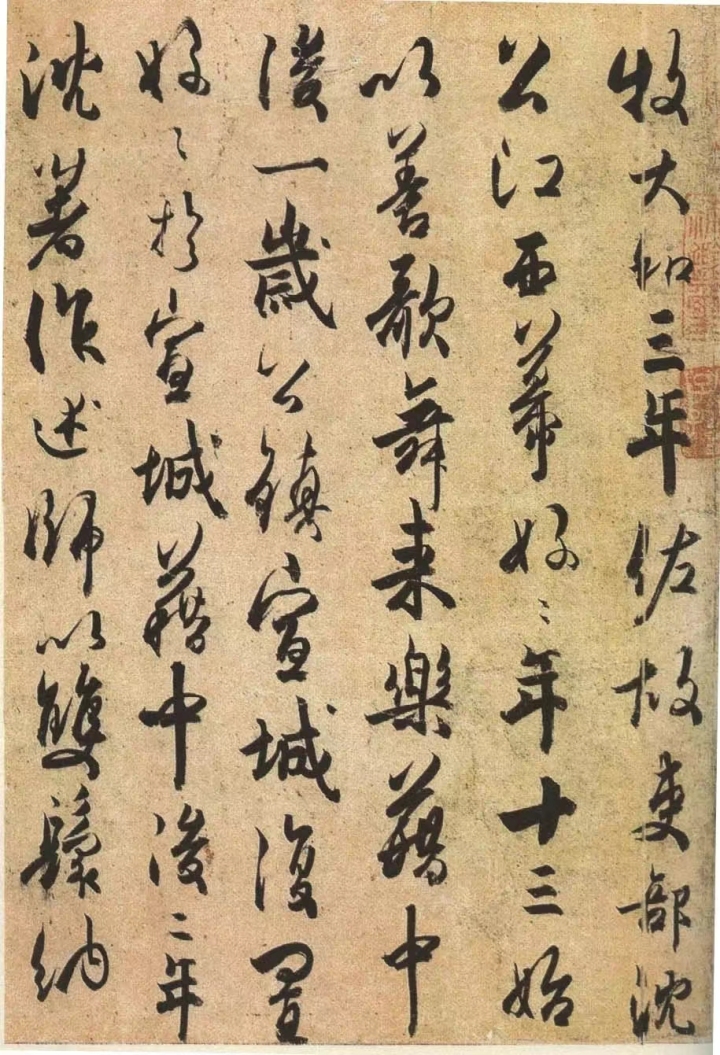 牧大和三年佐故吏部沈
公江西幕好〻年十三始
以善歌舞来樂籍中
後一歲公鎮宣城復置
好〻於宣城籍中後二年
沈著作述師以雙鬟納